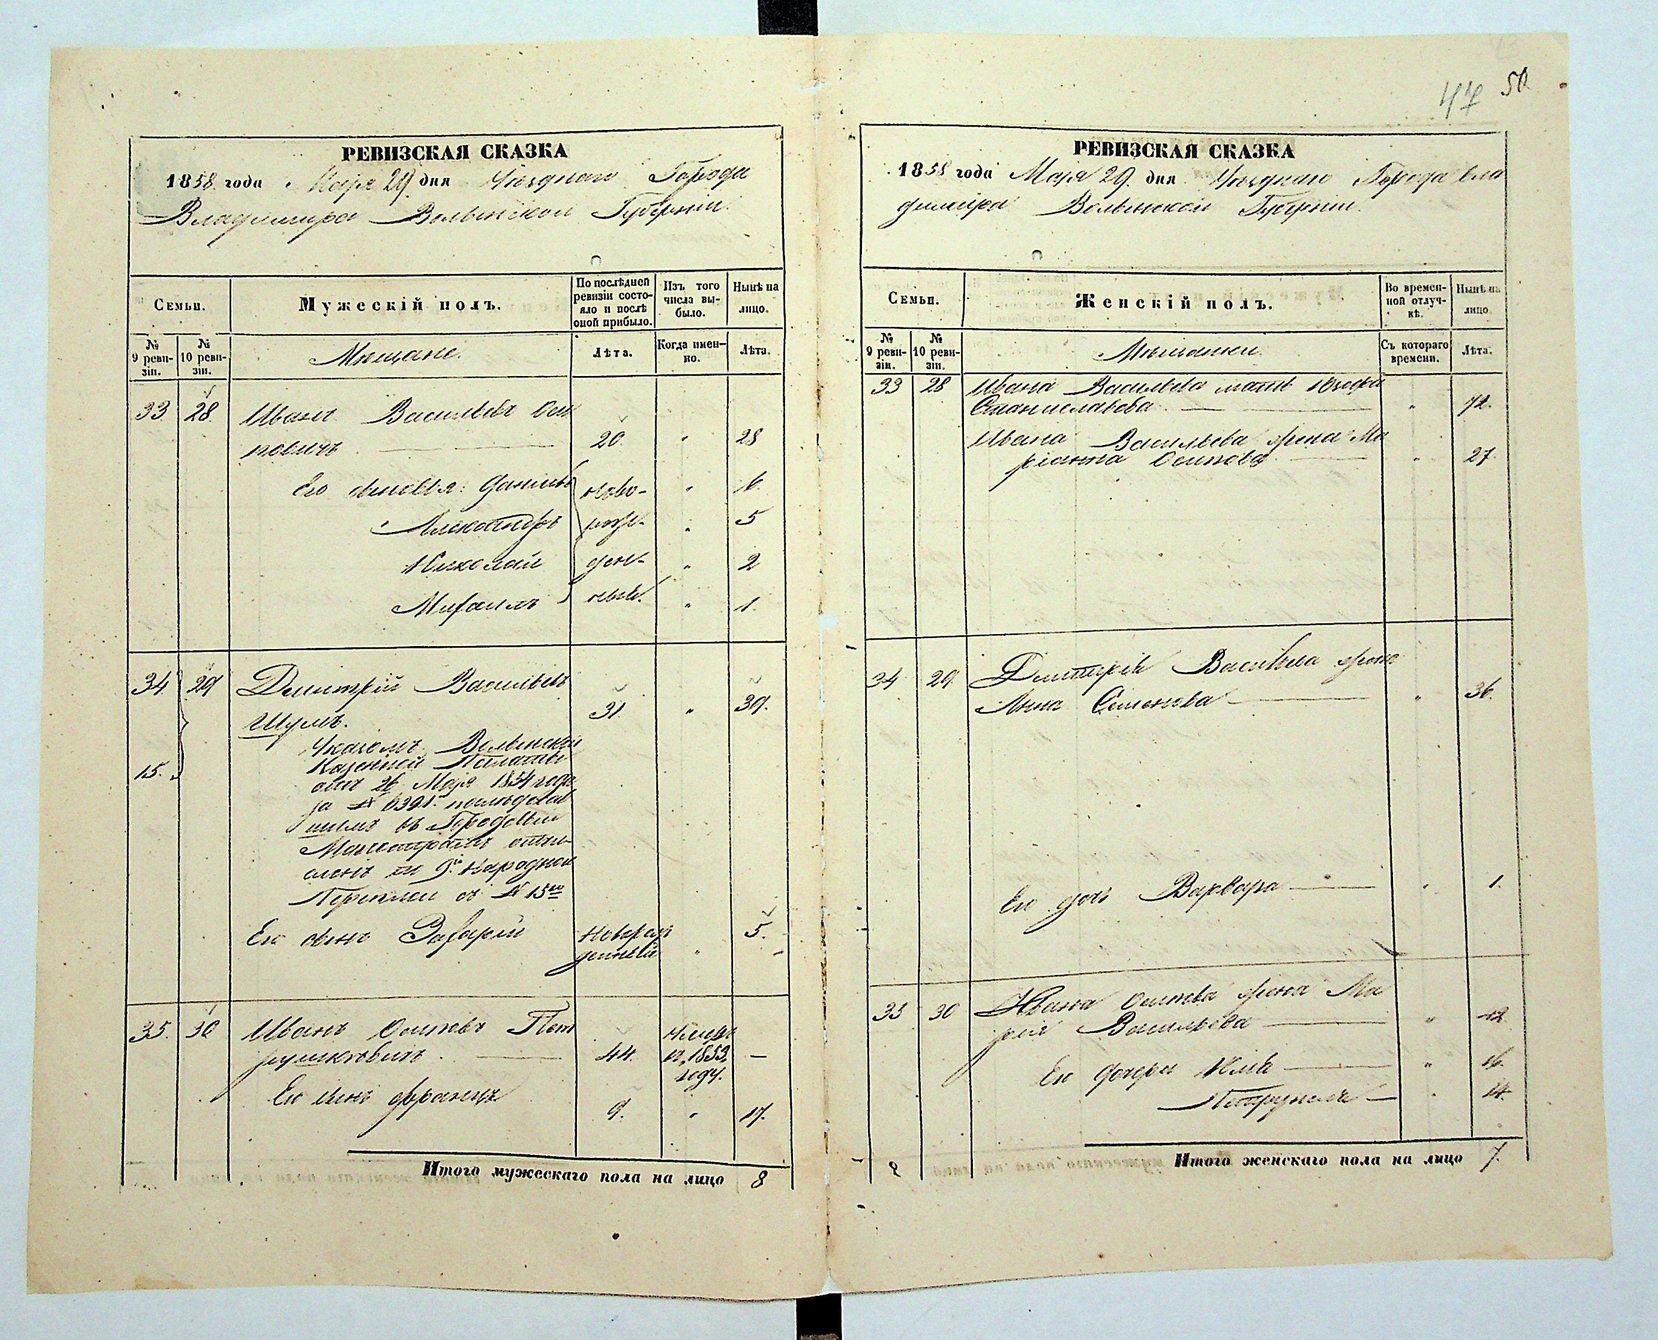 47 50
РЕВИЗСКАЯ СКАЗКА
1858 года Мая 29 дня Уѣзднаго Города
Владимира Волынской Губерніи.
Семьи.
Мужескій полъ.
По послѣдней ревизіи состояло и послѣ оной прибыло.
Изъ того числа выбыло.
Нынѣ на лицо.
№ 9 ревизіи.
№ 10 ревизіи.
Мѣщане.
Лѣта.
Когда именно.
Лѣта.
33 28 Иванъ Васильевъ Оси
повичъ 20. " 28
Его сыновья: Данiилъ ново- " 6.
Александръ рож- " 5
Николай ден- " 2
Михаилъ ные. " 1.
34 29 Дмитрій Васильевъ
Шумъ. 31. " 39.
Указомъ Волынской
15. Казенной Палаты
отъ 26 Мая 1854 года
за № 6391. послѣдовав
шимъ въ Городовый
Магистратъ
по 9й Народной
Переписи съ № 15го
Его сынъ Захарій Новорож
денный " 5.
35. 30 Иванъ Осиповъ Пет
рушкевичъ. 44. Умеръ въ 1853 году. —
Его сынъ Францъ 9. " 17.
Итого мужескаго пола на лицо 8
РЕВИЗСКАЯ СКАЗКА
1858 года Мая 29. дня Уѣзднаго Города Вла
димира Волынской Губерніи.
Семьи.
Женскій полъ.
Во временной отлучкѣ.
Нынѣ на лицо
№ 9 ревизіи.
№ 10 ревизіи.
Мѣщанки.
Съ котораго времени.
Лѣта.
33 28 Ивана Васильева мать Юзефа
Станиславова " 72.
Ивана Васильева жена Ма
ріанна Осипова " 27.
34 29. Дмитрія Васильева жена
Анна Семенова " 36.
Его дочь Варвара " 1.
35 30 Ивана Осипова жена Ма
рія Васильева " 42
Его дочери Юлія " 16.
Петрунеля " 14.
Итого женскаго пола на лицо 7.